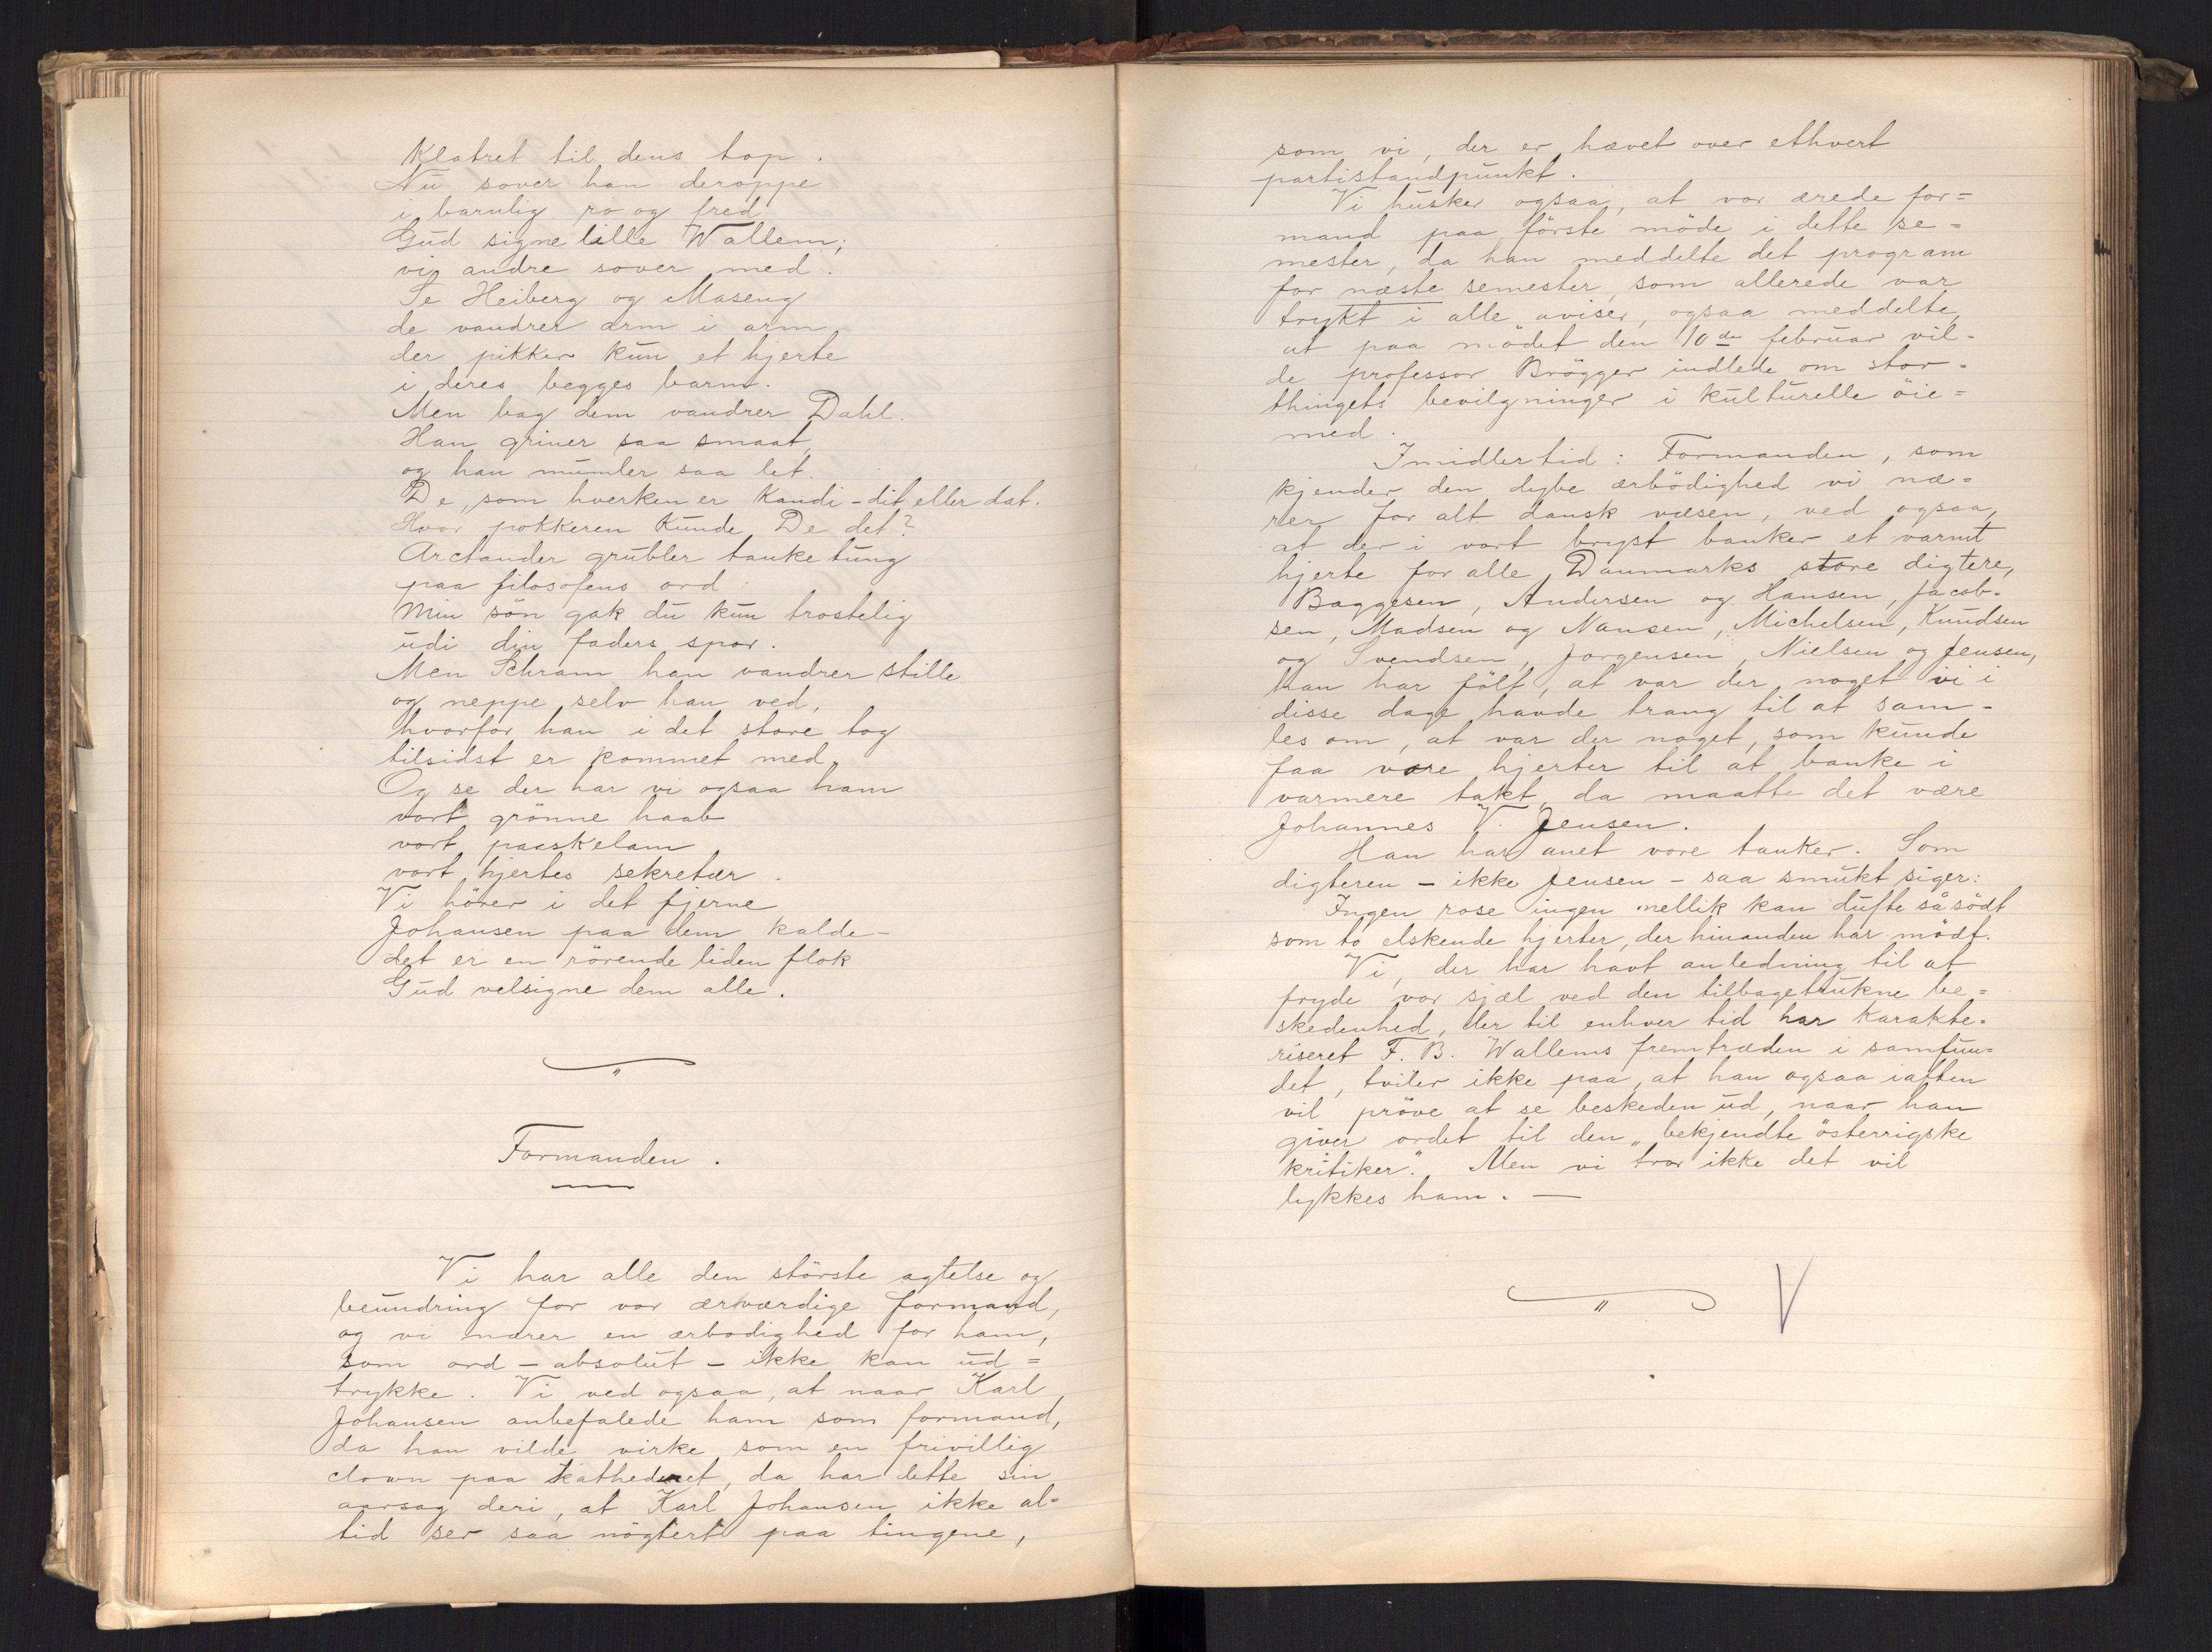 Klatret til dens top.
Nu sover han deroppe
i barnlig ro og fred
Gud signe lille Wallem;
vi andre sover med.
Se Heiberg og Maseng
de vandrer arm i arm
der pikker kun et hjerte
i deres begges barm.
Men bag dem vandrer Dahl.
Han griner saa smaat,
og han mumler saa let.
De, som hverken er Kandi-dit eller dat.
Hvor pokkeren kunde De det?
Arctander grubler tanketung
paa filosofens ord
Min sön gak du kun trostelig
udi din faders spor.
Men Schram han vandrer stille
og neppe selv han ved,
hvorfor han i det store tog
tilsidst er kommet med.
Og se der har vi ogsaa ham
vort grönne haab
vort paaskelam
vort hjertes sekretær.
Vi hörer i det fjerne
Johansen paa dem kalde-
det er en rörende liden flok
Gud velsigne dem alle.
"
Formanden.
Vi har alle den störste agtelse og
beundring for vor ærværdige formand,
og vi nærer en ærbodighed for ham,
som ord - absolut - ikke kan ud=
trykke. Vi ved ogsaa, at naar Karl
Johansen anbefalede ham som formand,
da han vilde virke som en frivillig
clown paa kathederet, da har dette sin
aarsag deri, at Karl Johansen ikke al=
tid ser saa nögtert paa tingene,
som vi, der er hævet over ethvert
partistandpunkt.
Vi husker ogsaa, at vor ærede for=
mand paa förste möde i dette se=
mester, da han meddelte det program
for næste semester, som allerede var
trykt i alle aviser, ogsaa meddelte,
at paa mödet den 10de februar vil=
de professor Brögger indlede om stor=
thingets bevilgninger i kulturelle öie=
med.
Imidlertid: Formanden, som
kjender den dybe ærbödighed vi næ=
rer for alt dansk væsen, ved ogsaa,
at der i vort bryst banker et varmt
hjerte for alle Danmarks store digtere,
Baggesen, Andersen og Hansen, Jacob-
sen, Madsen og Nansen, Michelsen, Knudsen
og Svendsen, Jorgensen, Nielsen og Jensen,
Han har fölt, at var der noget vi i
disse dage havde trang til at sam-
les om, at var der noget, som kunde
faa vore hjerter til at banke i
varmere takt, da maatte det være
Johannes V. Jensen.
Han har anet vore tanker. Som
digteren - ikke Jensen - saa smukt siger:
Ingen rose ingen nellik kan dufte så södt
som to elskende hjerter, der hinanden har mödt.
Vi, der har havt anledning til at
fryde vor sjæl ved den tilbagetrukne be=
skedenhed, der til enhver tid har karakte-
riseret F. B. Wallems fremtræden i samfun=
det, tviler ikke paa, at han ogsaa iaften
vil pröve at se beskeden ud, naar han
giver ordet til den „bekjendte österrigske
kritiker." Men vi tror ikke det vil
lykkes ham. —
"
V